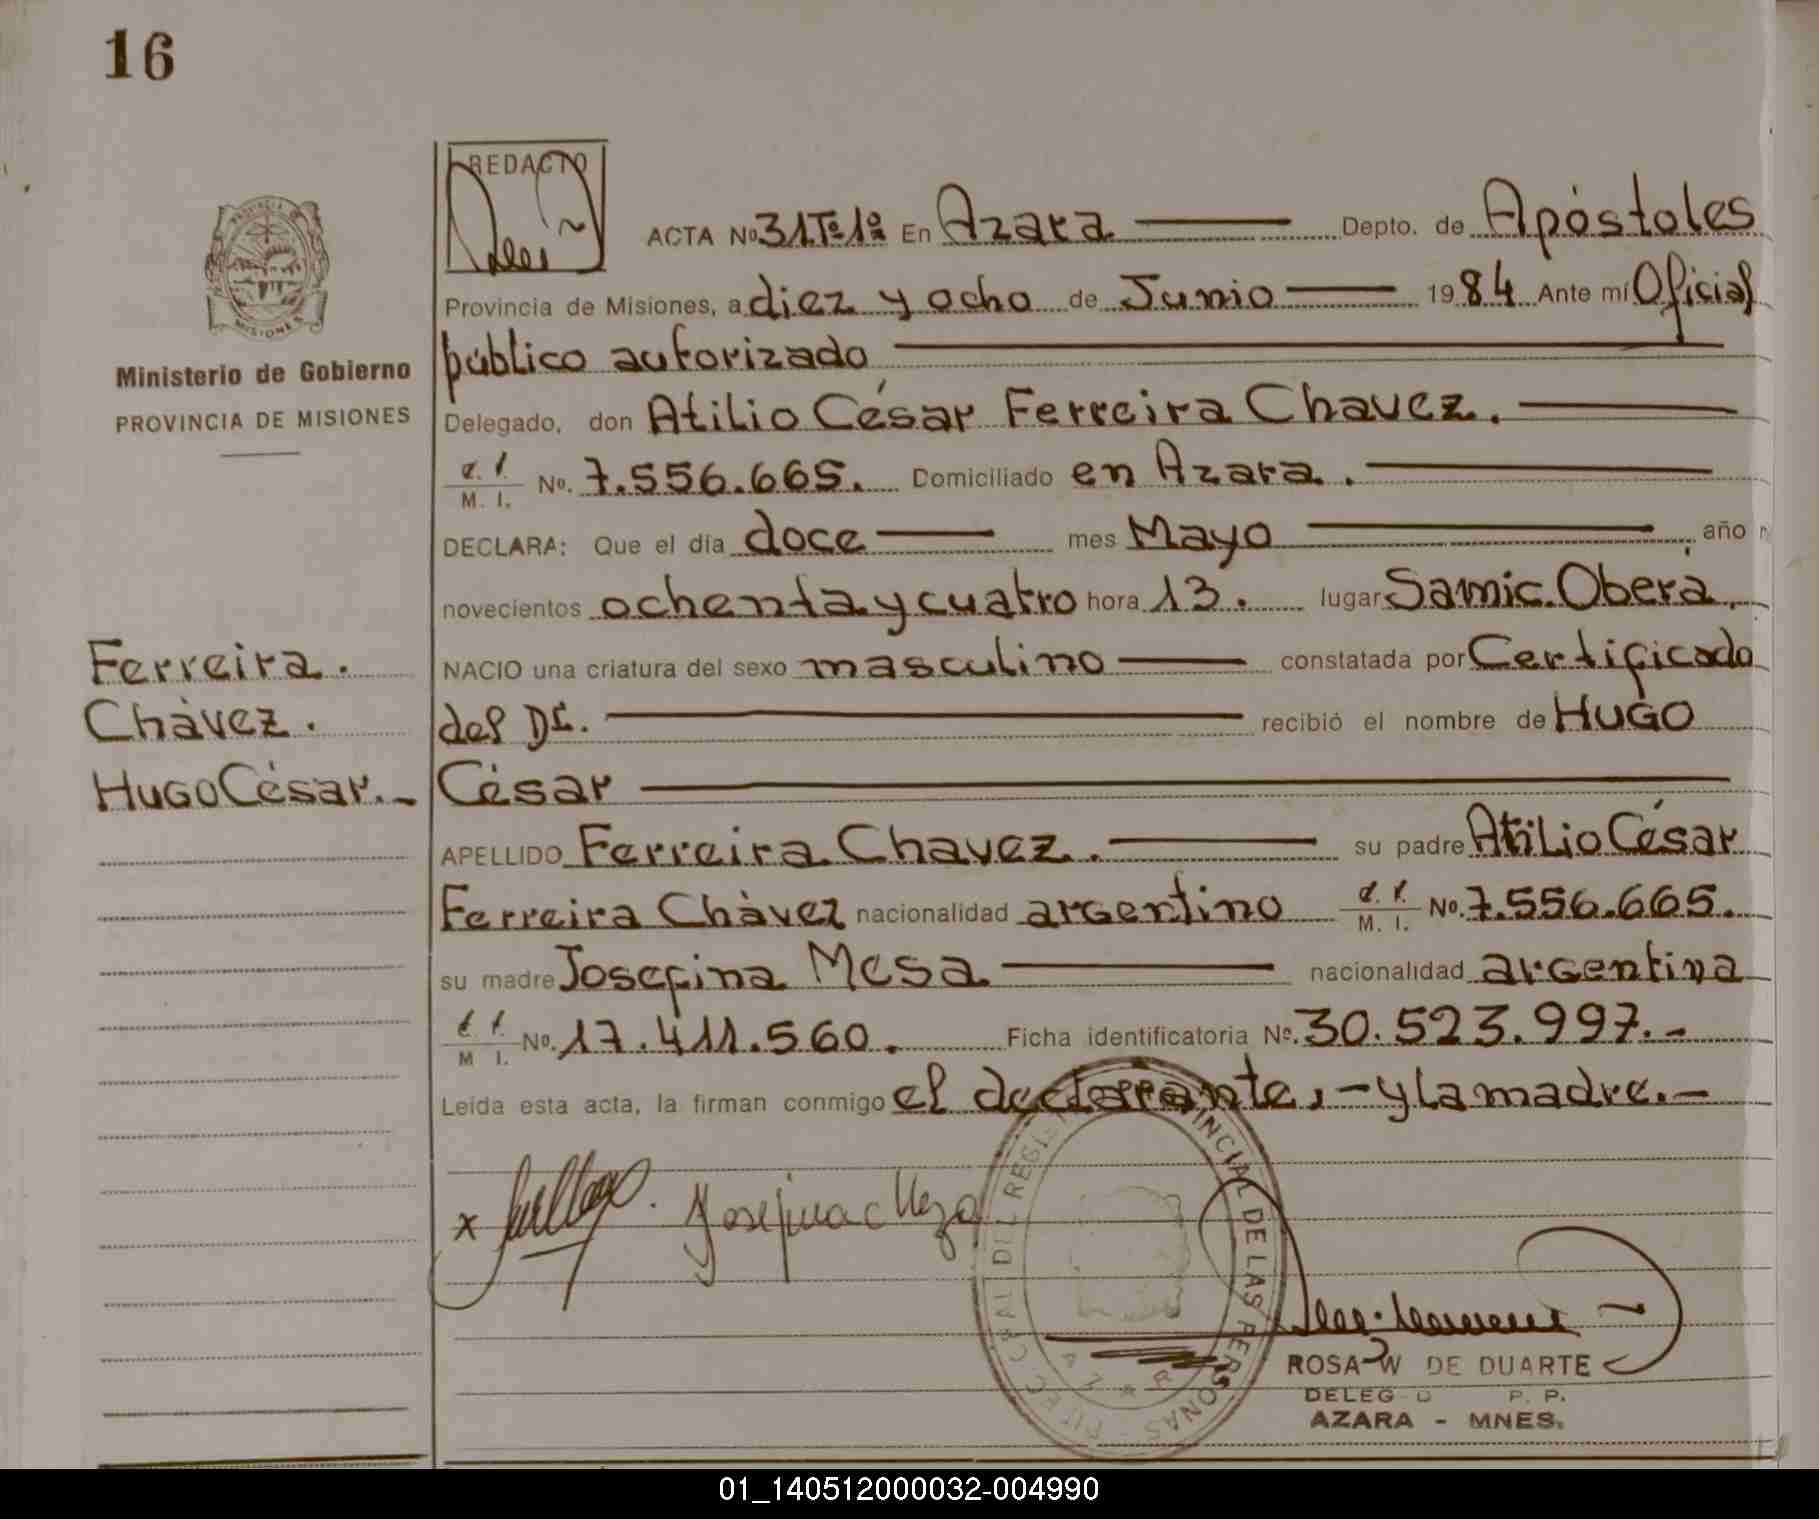 16
REDACTO
ACTA Nº 31Tº1º En Azara Depto. de Apóstoles
Provincia de Misiones, a diez y ocho de Junio 1984 Ante mí Oficial
público autorizado
Delegado, don Atilio César Ferreira Chavez.
M. I. Nº. 7.556.665. Domiciliado en Azara.
DECLARA: Que el día doce mes Mayo, año
novecientos ochenta y cuatro hora 13. lugar Samic. Oberá,
NACIO una criatura del sexo masculino constatada por Certificado
del Dr. recibió el nombre de HUGO
César
APELLIDO Ferreira Chavez. su padre Atilio César
Ferreira Chàvez nacionalidad argentino M. I. Nº. 7.556.665.
su madre Josefina Mesa nacionalidad argentina
M I. Nº. 17.411.560. Ficha identificatoria Nº. 30.523.997.-
Leída esta acta, la firman conmigo el declarante, - y la madre.-
PROVINCIA DE MISIONES
Ministerio de Gobierno
PROVINCIA DE MISIONES
Ferreira.
Chàvez.
HUGO César.-
x
Josefina Meza
DEL REGIS INCIAL DE LAS PERSONAS
ROSA W DE DUARTE
DELEG P. P.
AZARA - MNES.
01_140512000032-004990